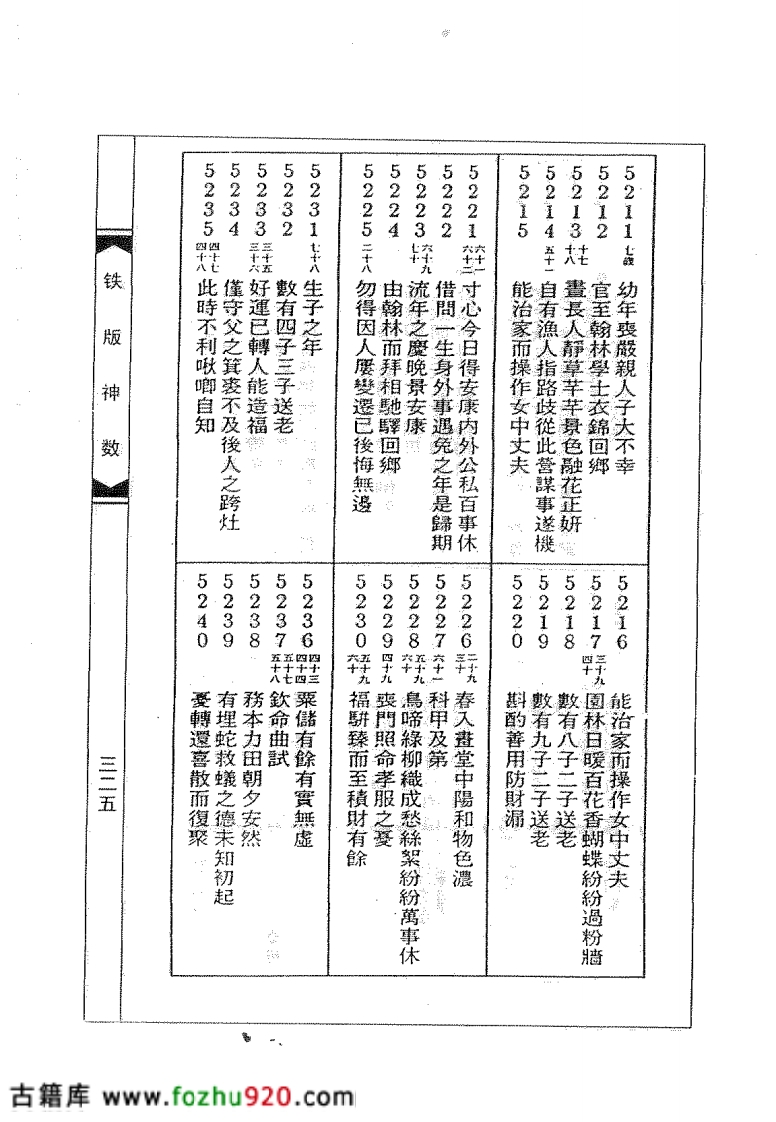 5211 七歲 幼年喪嚴親人子大不幸
5212 官至翰林學士衣錦回鄉
5213 十七 十八 晝長人靜草芊芊景色融花正妍
5214 五十一 自有漁人指路歧從此營謀事遂機
5215 能治家而操作女中丈夫
5216 能治家而操作女中丈夫
5217 三十九 四十 園林日暖百花香蝴蝶紛紛過粉牆
5218 數有八子二子送老
5219 數有九子二子送老
5220 斟酌善用防財漏
5221 六十一 六十二 寸心今日得安康內外公私百事休
5222 借問一生身外事遇兔之年是歸期
5223 六十九 七十 流年之慶晚景安康
5224 由翰林而拜相馳驛回鄉
5225 二十八 勿得因人屢變遷已後悔無邊
5226 二十九 三十 春入畫堂中陽和物色濃
5227 六十一 科甲及第
5228 五十九 六十 鳥啼綠柳織成愁絲絮紛紛萬事休
5229 四十九 喪門照命孝服之憂
5230 五十九 六十 福駢臻而至積財有餘
5231 七十八 生子之年
5232 數有四子三子送老
5233 三十五 三十六 好運已轉人能造福
5234 僅守父之箕裘不及後人之跨灶
5235 四十七 四十八 此時不利啾唧自知
5236 四十三 四十四 粟儲有餘有實無虛
5237 五十七 五十八 欽命曲試
5238 務本力田朝夕安然
5239 有埋蛇救蟻之德未知初起
5240 憂轉還喜散而復聚
铁版神数
三二五
古籍库 www.fozhu920.com